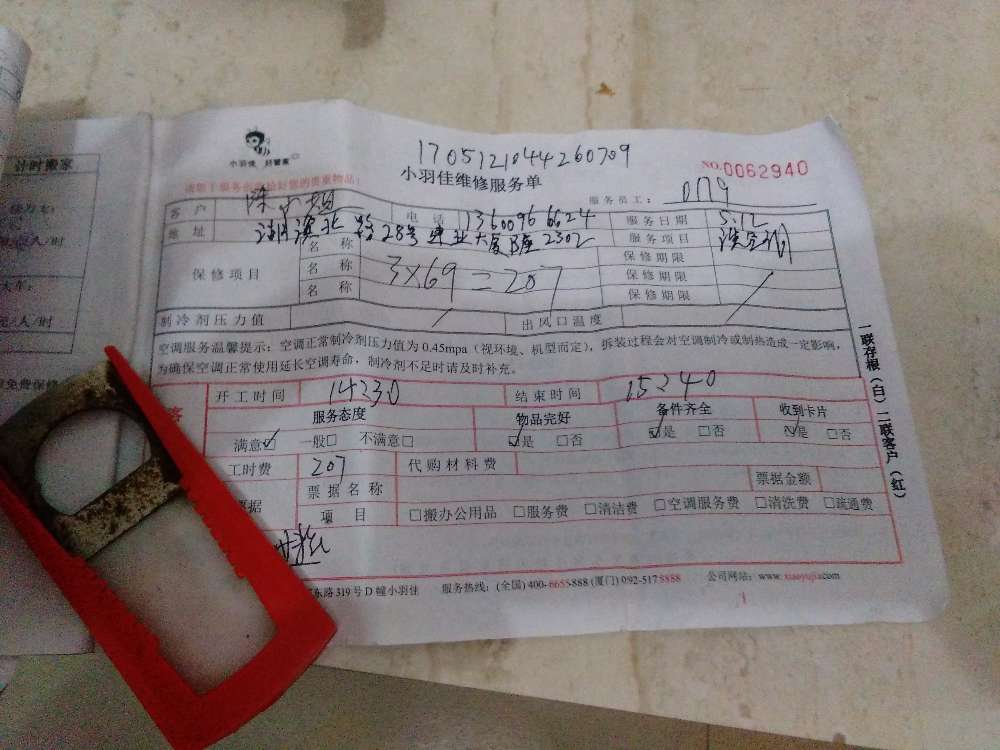 计时搬家
元/人/时
大车:
元/人/时
免费保修
小羽佳 好管家
1705121044260709
小羽佳维修服务单
NO.0062940
服务员工: 0179
客户 陈小姐 电话 13600966624 服务日期 5.12
地址 湖滨北路28号建业大厦B座2302 服务项目
保修项目 名称 保修期限
名称 3×69=207 保修期限
名称 保修期限
制冷剂压力值 出风口温度
空调服务温馨提示:空调正常制冷剂压力值为0.45mpa(视环境、机型而定),拆装过程会对空调制冷或制热造成一定影响,
为确保空调正常使用延长空调寿命,制冷剂不足时请及时补充。
开工时间 14:30 结束时间 15:40
服务态度 物品完好 备件齐全 收到卡片
满意☑ 一般□ 不满意□ ☑是 □否 ☑是 □否 ☑是 □否
工时费 207 代购材料费
票据 票据名称 票据金额
项目 □搬办公用品 □服务费 □清洁费 □空调服务费 □清洗费 □疏通费
东路319号D幢小羽佳 服务热线:(全国)400-6655-888(厦门)092-5178888 公司网站:www.xiaoyujia.com
1
一联存根(白)二联客户(红)